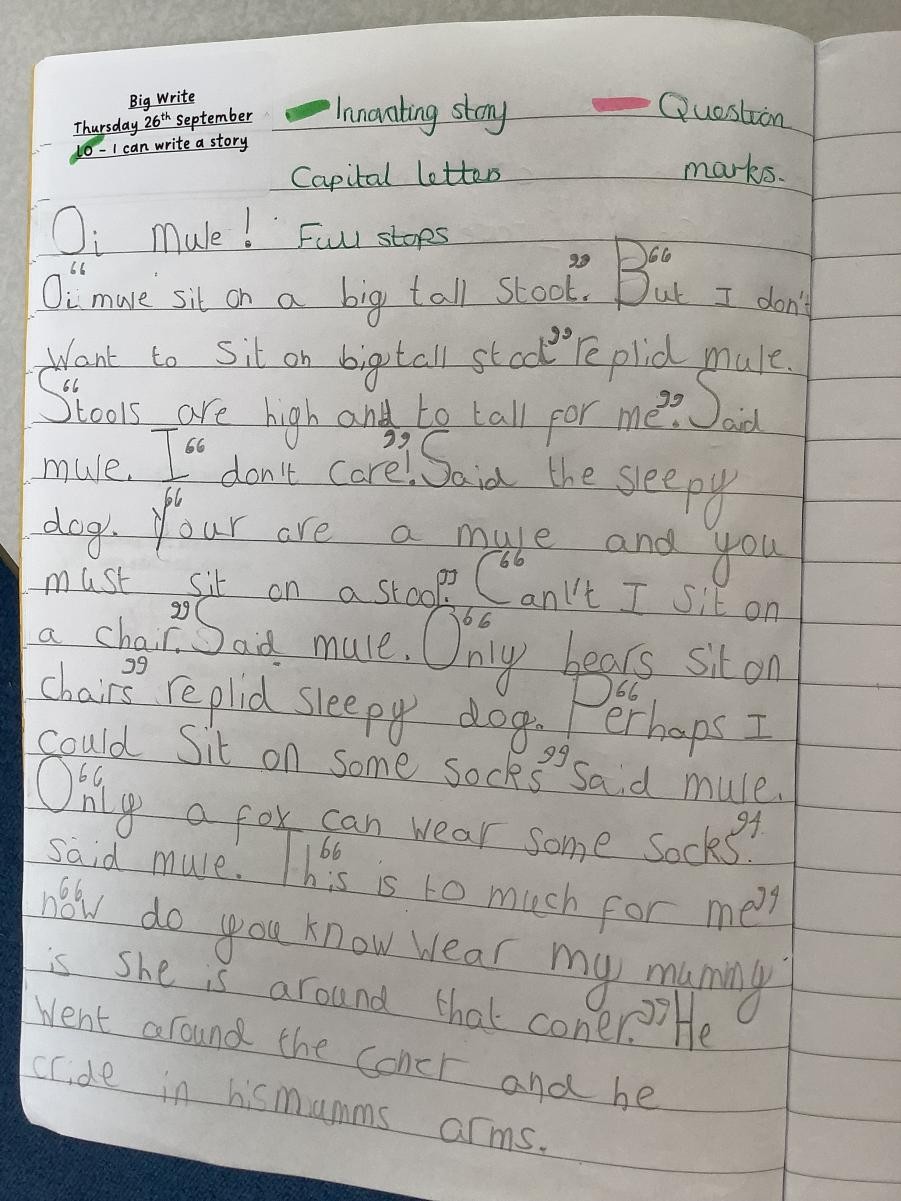 Big Write
Thursday 26th September
LO - I can write a story
Innovating story
Question marks.
Capital letters
Full stops
Oi mule!
"Oi mule sit on a big tall stool." "But I don't
want to sit on big tall stool" replid mule.
"Stools are high and to tall for me." Said
mule. "I don't care!" Said the sleepy
dog. "Your are a mule and you
must sit on a stool." "Canl't I sit on
a chair." Said mule. "Only bears sit on
chairs" replid sleepy dog. "Perhaps I
could Sit on some socks" said mule.
"Only a fox can wear some socks."
said mule. "This is to much for me"
"now do you know wear my mummy
is she is around that coner." He
went around the coner and he
cride in his mumms arms.